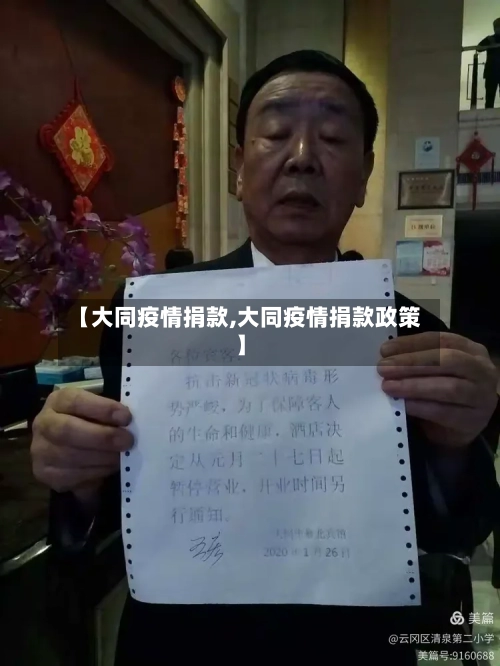 【大同疫情捐款,大同疫情捐款政策
】
各位宾客
抗击新冠状病毒形
势严峻，为了保障客人
的生命和健康，酒店决
定从元月二十七日起
暂停营业，开业时间另
行通知。
2020年1月26日
美篇
@云冈区清泉第二小学
美篇号:9160688